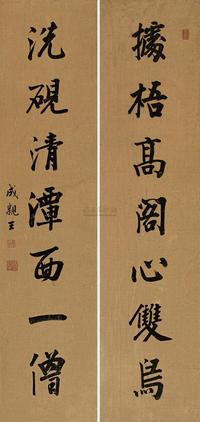 據梧高閣心雙鳥
洗硯清潭西一僧
成親王